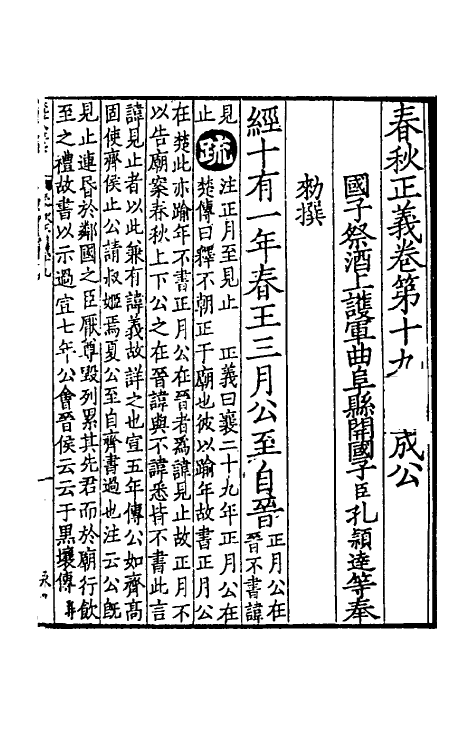 春秋正義卷第十九　　成公
國子祭酒上護軍曲阜縣開國子臣孔穎達等奉
勑撰
經十有一年春王三月公至自晉正月公在
晉不書諱
見止疏注正月至見止　正義曰襄二十九年正月公在
楚傳曰釋不朝正于廟也彼以踰年故書正月公
在楚此亦踰年不書正月公在晉者爲諱見止故正月不
以告廟案春秋上下公之在晉諱與不諱悉皆不書此言
諱見止者以此兼有諱義故詳之也宣五年傳公如齊髙
固使齊侯止公請叔姬焉夏公至自齊書過也注云公旣
見止連昏於鄰國之臣厭尊毀列累其先君而於廟行飲
至之禮故書以示過宣七年公會晉侯云云于黑壤傳
一